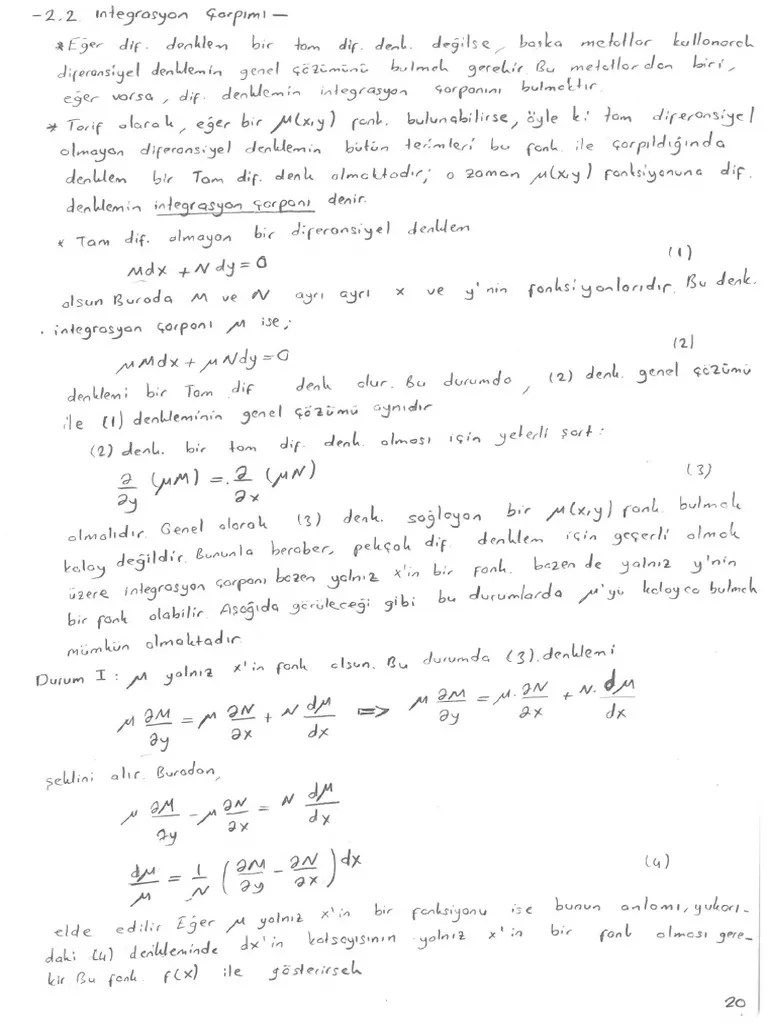 -2.2 integrasyon Çarpımı-
* Eğer dif. denklem bir tam dif. denk. değilse, başka metotlar kullanarak
diferansiyel denklemin genel çözümünü bulmak gerekir. Bu metotlardan biri,
eğer varsa, dif. denklemin integrasyon çarpanını bulmaktır.
* Tarif olarak, eğer bir μ(x,y) fonk. bulunabilirse, öyle ki tam diferansiyel
olmayan diferansiyel denklemin bütün terimleri bu fonk. ile çarpıldığında
denklem bir Tam dif. denk olmaktadır; o zaman μ(x,y) fonksiyonuna dif.
denklemin integrasyon çarpanı denir.
* Tam dif. olmayan bir diferansiyel denklem
Mdx + Ndy = 0 (1)
olsun Burada M ve N ayrı ayrı x ve y'nin fonksiyonlarıdır. Bu denk.
. integrasyon çarpanı μ ise;
μMdx + μNdy = 0 (2)
denklemi bir Tam dif denk olur. Bu durumda, (2) denk. genel çözümü
ile (1) denkleminin genel çözümü aynıdır
(2) denk. bir tam dif. denk. olması için yeterli şart:
∂/∂y (μM) = ∂/∂x (μN) (3)
olmalıdır. Genel olarak (3) denk. sağlayan bir μ(x,y) fonk. bulmak
kolay değildir. Bununla beraber, pekçok dif. denklem için geçerli olmak
üzere integrasyon çarpanı bazen yalnız x'in bir fonk. bazen de yalnız y'nin
bir fonk olabilir. Aşağıda görüleceği gibi bu durumlarda μ'yü kolayca bulmak
mümkün olmaktadır.
Durum I: μ yalnız x'in fonk olsun. Bu durumda (3). denklemi
μ ∂M/∂y = μ ∂N/∂x + N dμ/dx ⇒ μ ∂M/∂y = μ. ∂N/∂x + N. dμ/dx
şeklini alır. Buradan,
μ ∂M/∂y - μ ∂N/∂x = N dμ/dx
dμ/μ = 1/N (∂M/∂y - ∂N/∂x) dx (4)
elde edilir Eğer μ yalnız x'in bir fonksiyonu ise bunun anlamı, yukarı-
daki (4) denkleminde dx'in katsayısının yalnız x'in bir fonk olması gere-
kir Bu fonk. f(x) ile gösterirsek
20